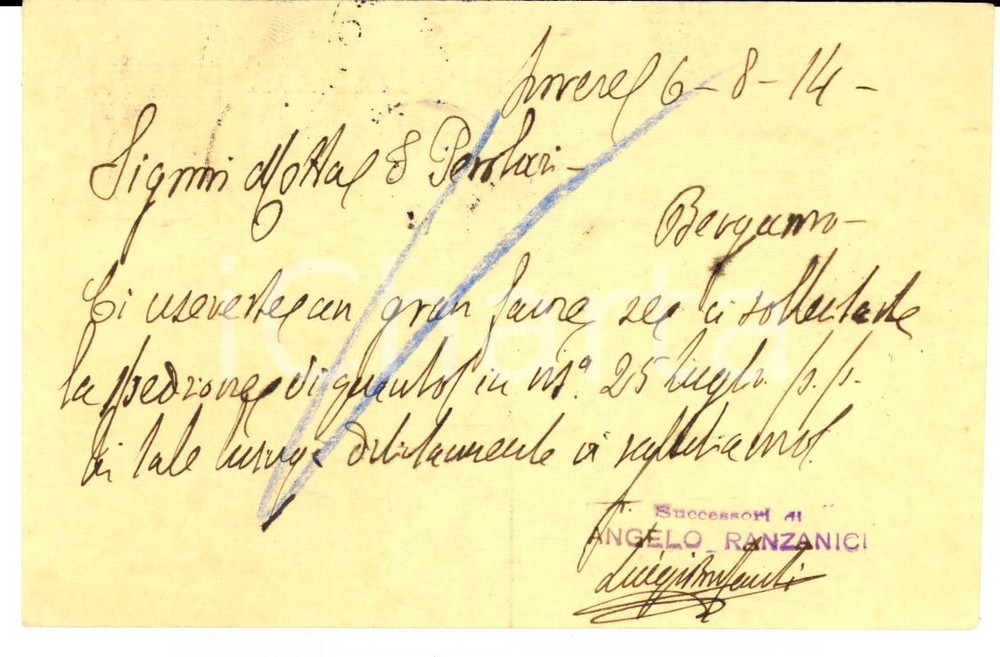 Lovere 6-8-14-
Signori Motta & Perolari-
Bergamo-
Ci userete un gran favore se ci sollecitate
la spedizione di quanto in ns/a. 25 luglio p.p.
In tale lusinga distintamente vi salutiamo.
p. Successori di
ANGELO RANZANICI
Luigi
iCharta